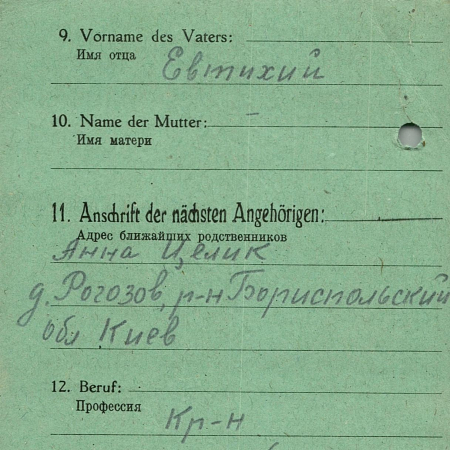 9. Vorname des Vaters:
Имя отца
Евтихий
10. Name der Mutter: –
Имя матери
11. Anschrift der nächsten Angehörigen:
Адрес ближайших родственников
Анна Целик
д. Рогозов, р-н Бориспольский
обл Киев
12. Beruf:
Профессия
Кр-н